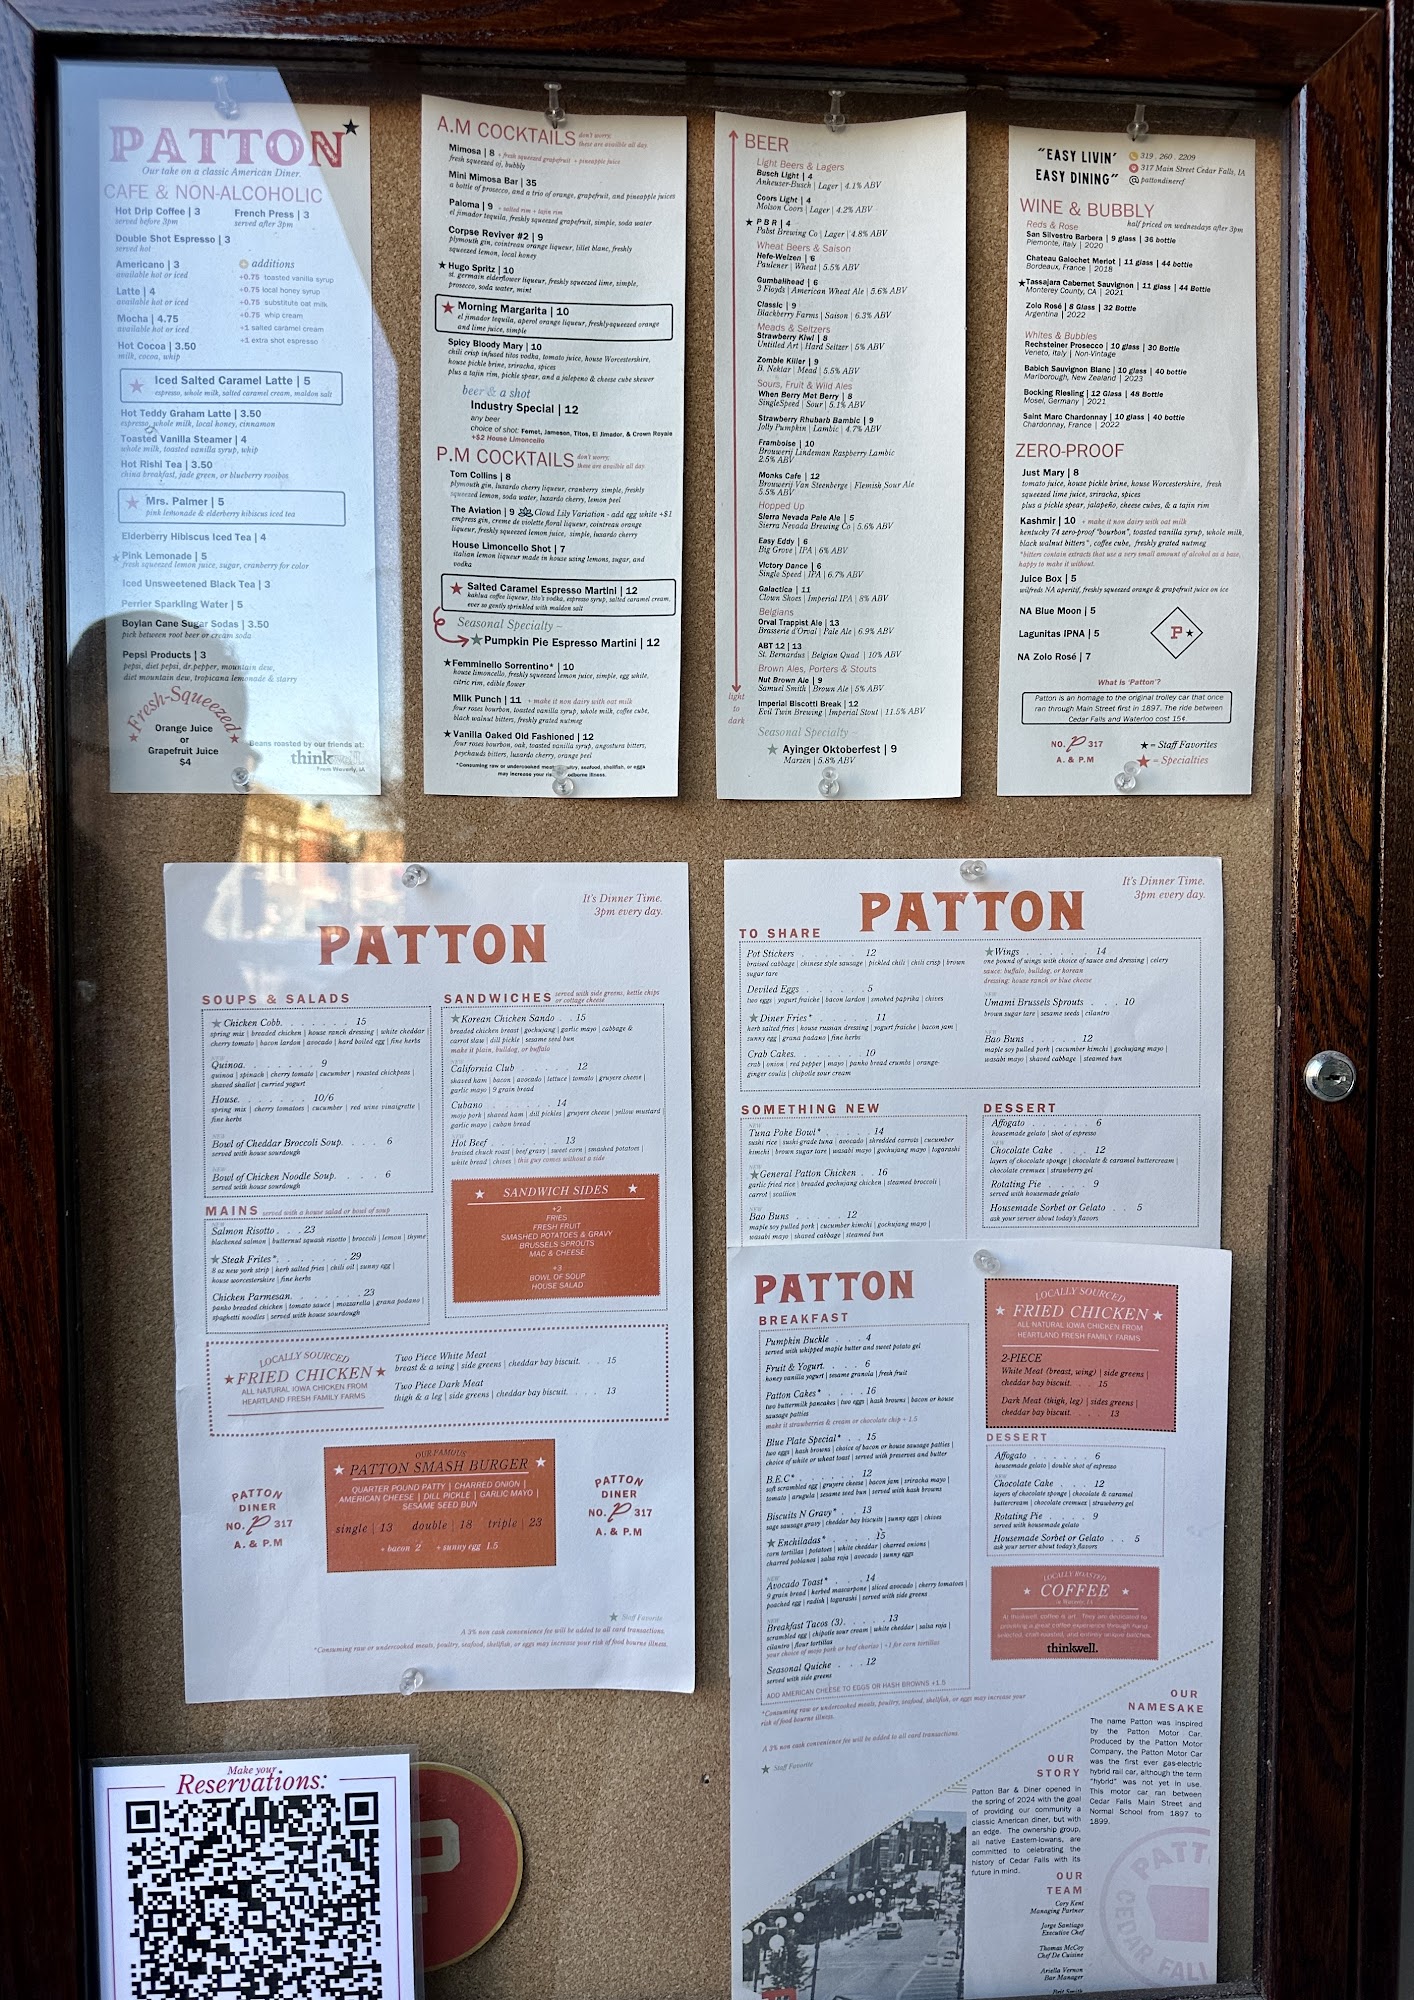 PATTON
Our take on a classic American Diner.
CAFE & NON-ALCOHOLIC
Hot Drip Coffee | 3
served before 3pm
French Press | 3
served after 3pm
Double Shot Espresso | 3
served hot
Americano | 3
available hot or iced
Latte | 4
available hot or iced
Mocha | 4.75
available hot or iced
Hot Cocoa | 3.50
milk, cocoa, whip
additions
+0.75 toasted vanilla syrup
+0.75 local honey syrup
+0.75 substitute oat milk
+0.75 whip cream
+1 salted caramel cream
+1 extra shot espresso
Iced Salted Caramel Latte | 5
espresso, whole milk, salted caramel cream, maldon salt
Hot Teddy Graham Latte | 3.50
espresso, whole milk, local honey, cinnamon
Toasted Vanilla Steamer | 4
whole milk, toasted vanilla syrup, whip
Hot Rishi Tea | 3.50
china breakfast, jade green, or blueberry rooibos
Mrs. Palmer | 5
pink lemonade & elderberry hibiscus iced tea
Elderberry Hibiscus Iced Tea | 4
Pink Lemonade | 5
fresh squeezed lemon juice, sugar, cranberry for color
Iced Unsweetened Black Tea | 3
Perrier Sparkling Water | 5
Boylan Cane Sugar Sodas | 3.50
pick between root beer or cream soda
Pepsi Products | 3
pepsi, diet pepsi, dr.pepper, mountain dew,
diet mountain dew, tropicana lemonade & starry
Fresh-Squeezed
Orange Juice
or
Grapefruit Juice
$4
Beans roasted by our friends at:
thinkwell
From Waverly, IA
A.M COCKTAILS
don't worry,
these are availble all day.
Mimosa | 8 + fresh squeezed grapefruit + pineapple juice
fresh squeezed oj, bubbly
Mini Mimosa Bar | 35
a bottle of prosecco, and a trio of orange, grapefruit, and pineapple juices
Paloma | 9 + salted rim + tajin rim
el jimador tequila, freshly squeezed grapefruit, simple, soda water
Corpse Reviver #2 | 9
plymouth gin, cointreau orange liqueur, lillet blanc, freshly
squeezed lemon, local honey
Hugo Spritz | 10
st. germain elderflower liqueur, freshly squeezed lime, simple,
prosecco, soda water, mint
Morning Margarita | 10
el jimador tequila, aperol orange liqueur, freshly-squeezed orange
and lime juice, simple
Spicy Bloody Mary | 10
chili crisp infused titos vodka, tomato juice, house Worcestershire,
house pickle brine, sriracha, spices
plus a tajin rim, pickle spear, and a jalepeno & cheese cube skewer
beer & a shot
Industry Special | 12
any beer
choice of shot: Fernet, Jameson, Titos, El Jimador, & Crown Royale
+$2 House Limoncello
P.M COCKTAILS
don't worry,
these are availble all day.
Tom Collins | 8
plymouth gin, luxardo cherry liqueur, cranberry simple, freshly
squeezed lemon, soda water, luxardo cherry, lemon peel
The Aviation | 9 Cloud Lily Variation - add egg white +$1
empress gin, creme de violette floral liqueur, cointreau orange
liqueur, freshly squeezed lemon juice, simple, luxardo cherry
House Limoncello Shot | 7
italian lemon liqueur made in house using lemons, sugar, and
vodka
Salted Caramel Espresso Martini | 12
kahlua coffee liqueur, tito's vodka, espresso syrup, salted caramel cream,
ever so gently sprinkled with maldon salt
Seasonal Specialty –
Pumpkin Pie Espresso Martini | 12
Femminello Sorrentino* | 10
house limoncello, freshly squeezed lemon juice, simple, egg white,
citric rim, edible flower
Milk Punch | 11 + make it non dairy with oat milk
four roses bourbon, toasted vanilla syrup, whole milk, coffee cube,
black walnut bitters, freshly grated nutmeg
Vanilla Oaked Old Fashioned | 12
four roses bourbon, oak, toasted vanilla syrup, angostura bitters,
peychauds bitters, luxardo cherry, orange peel
*Consuming raw or undercooked meat, poultry, seafood, shellfish, or eggs
may increase your risk foodborne illness.
BEER
Light Beers & Lagers
Busch Light | 4
Anheuser-Busch | Lager | 4.1% ABV
Coors Light | 4
Molson Coors | Lager | 4.2% ABV
P B R | 4
Pabst Brewing Co | Lager | 4.8% ABV
Wheat Beers & Saison
Hefe-Weizen | 6
Paulener | Wheat | 5.5% ABV
Gumballhead | 6
3 Floyds | American Wheat Ale | 5.6% ABV
Classic | 9
Blackberry Farms | Saison | 6.3% ABV
Meads & Seltzers
Strawberry Kiwi | 8
Untitled Art | Hard Seltzer | 5% ABV
Zombie Killer | 9
B. Nektar | Mead | 5.5% ABV
Sours, Fruit & Wild Ales
When Berry Met Berry | 8
SingleSpeed | Sour | 5.1% ABV
Strawberry Rhubarb Bambic | 9
Jolly Pumpkin | Lambic | 4.7% ABV
Framboise | 10
Brouwerij Lindeman Raspberry Lambic
2.5% ABV
Monks Cafe | 12
Brouwerij Van Steenberge | Flemish Sour Ale
5.5% ABV
Hopped Up
Sierra Nevada Pale Ale | 5
Sierra Nevada Brewing Co | 5.6% ABV
Easy Eddy | 6
Big Grove | IPA | 6% ABV
Victory Dance | 6
Single Speed | IPA | 6.7% ABV
Galactica | 11
Clown Shoes | Imperial IPA | 8% ABV
Belgians
Orval Trappist Ale | 13
Brasserie d'Orval | Pale Ale | 6.9% ABV
ABT 12 | 13
St. Bernardus | Belgian Quad | 10% ABV
Brown Ales, Porters & Stouts
Nut Brown Ale | 9
Samuel Smith | Brown Ale | 5% ABV
Imperial Biscotti Break | 12
Evil Twin Brewing | Imperial Stout | 11.5% ABV
light
to
dark
Seasonal Specialty –
Ayinger Oktoberfest | 9
Marzen | 5.8% ABV
"EASY LIVIN'
EASY DINING"
319 . 260 . 2209
317 Main Street Cedar Falls, IA
@pattondinercf
WINE & BUBBLY
Reds & Rose
half priced on wednesdays after 3pm
San Silvestro Barbera | 9 glass | 36 bottle
Piemonte, Italy | 2020
Chateau Galochet Merlot | 11 glass | 44 bottle
Bordeaux, France | 2018
Tassajara Cabernet Sauvignon | 11 glass | 44 Bottle
Monterey County, CA | 2021
Zolo Rosé | 8 Glass | 32 Bottle
Argentina | 2022
Whites & Bubbles
Rechsteiner Prosecco | 10 glass | 30 Bottle
Veneto, Italy | Non-Vintage
Babich Sauvignon Blanc | 10 glass | 40 bottle
Marlborough, New Zealand | 2023
Bocking Riesling | 12 Glass | 48 Bottle
Mosel, Germany | 2021
Saint Marc Chardonnay | 10 glass | 40 bottle
Chardonnay, France | 2022
ZERO-PROOF
Just Mary | 8
tomato juice, house pickle brine, house Worcestershire, fresh
squeezed lime juice, sriracha, spices
plus a pickle spear, jalapeño, cheese cubes, & a tajin rim
Kashmir | 10 + make it non dairy with oat milk
kentucky 74 zero-proof "bourbon", toasted vanilla syrup, whole milk,
black walnut bitters*, coffee cube, freshly grated nutmeg
*bitters contain extracts that use a very small amount of alcohol as a base,
happy to make it without.
Juice Box | 5
wilfreds NA aperitif, freshly squeezed orange & grapefruit juice on ice
NA Blue Moon | 5
Lagunitas IPNA | 5
NA Zolo Rosé | 7
P
What is 'Patton'?
Patton is an homage to the original trolley car that once
ran through Main Street first in 1897. The ride between
Cedar Falls and Waterloo cost 15¢.
NO. P 317
A. & P.M
= Staff Favorites
= Specialties
It's Dinner Time.
3pm every day.
PATTON
SOUPS & SALADS
Chicken Cobb. 15
spring mix | breaded chicken | house ranch dressing | white cheddar
cherry tomato | bacon lardon | avocado | hard boiled egg | fine herbs
NEW
Quinoa. 9
quinoa | spinach | cherry tomato | cucumber | roasted chickpeas |
shaved shallot | curried yogurt
House. 10/6
spring mix | cherry tomatoes | cucumber | red wine vinaigrette |
fine herbs
NEW
Bowl of Cheddar Broccoli Soup. 6
served with house sourdough
NEW
Bowl of Chicken Noodle Soup. 6
served with house sourdough
MAINS served with a house salad or bowl of soup
NEW
Salmon Risotto 23
blackened salmon | butternut squash risotto | broccoli | lemon | thyme
Steak Frites*. 29
8 oz new york strip | herb salted fries | chili oil | sunny egg |
house worcestershire | fine herbs
Chicken Parmesan. 23
panko breaded chicken | tomato sauce | mozzarella | grana padano |
spaghetti noodles | served with house sourdough
SANDWICHES served with side greens, kettle chips
or cottage cheese
Korean Chicken Sando 15
breaded chicken breast | gochujang | garlic mayo | cabbage &
carrot slaw | dill pickle | sesame seed bun
make it plain, bulldog, or buffalo
NEW
California Club 12
shaved ham | bacon | avocado | lettuce | tomato | gruyere cheese |
garlic mayo | 9 grain bread
Cubano 14
mojo pork | shaved ham | dill pickles | gruyere cheese | yellow mustard |
garlic mayo | cuban bread
NEW
Hot Beef 13
braised chuck roast | beef gravy | sweet corn | smashed potatoes |
white bread | chives | this guy comes without a side
SANDWICH SIDES
+2
FRIES
FRESH FRUIT
SMASHED POTATOES & GRAVY
BRUSSELS SPROUTS
MAC & CHEESE
+3
BOWL OF SOUP
HOUSE SALAD
LOCALLY SOURCED
FRIED CHICKEN
ALL NATURAL IOWA CHICKEN FROM
HEARTLAND FRESH FAMILY FARMS
Two Piece White Meat
breast & a wing | side greens | cheddar bay biscuit. 15
Two Piece Dark Meat
thigh & a leg | side greens | cheddar bay biscuit. 13
OUR FAMOUS
PATTON SMASH BURGER
QUARTER POUND PATTY | CHARRED ONION |
AMERICAN CHEESE | DILL PICKLE | GARLIC MAYO |
SESAME SEED BUN
single | 13 double | 18 triple | 23
+ bacon 2 + sunny egg 1.5
PATTON
DINER
NO. P 317
A. & P.M
PATTON
DINER
NO. P 317
A. & P.M
Staff Favorite
A 3% non cash convenience fee will be added to all card transactions.
*Consuming raw or undercooked meats, poultry, seafood, shellfish, or eggs may increase your risk of food bourne illness.
It's Dinner Time.
3pm every day.
PATTON
TO SHARE
Pot Stickers 12
braised cabbage | chinese style sausage | pickled chili | chili crisp | brown
sugar tare
Deviled Eggs 5
two eggs | yogurt fraiche | bacon lardon | smoked paprika | chives
Diner Fries* 11
herb salted fries | house russian dressing | yogurt fraiche | bacon jam |
sunny egg | grana padano | fine herbs
Crab Cakes. 10
crab | onion | red pepper | mayo | panko bread crumbs | orange-
ginger coulis | chipotle sour cream
Wings 14
one pound of wings with choice of sauce and dressing | celery
sauce: buffalo, bulldog, or korean
dressing: house ranch or blue cheese
Umami Brussels Sprouts 10
brown sugar tare | sesame seeds | cilantro
NEW
Bao Buns 12
maple soy pulled pork | cucumber kimchi | gochujang mayo |
wasabi mayo | shaved cabbage | steamed bun
SOMETHING NEW
NEW
Tuna Poke Bowl* 14
sushi rice | sushi-grade tuna | avocado | shredded carrots | cucumber
kimchi | brown sugar tare | wasabi mayo | gochujang mayo | togarashi
NEW
General Patton Chicken 16
garlic fried rice | breaded gochujang chicken | steamed broccoli |
carrot | scallion
NEW
Bao Buns 12
maple soy pulled pork | cucumber kimchi | gochujang mayo |
wasabi mayo | shaved cabbage | steamed bun
DESSERT
Affogato 6
housemade gelato | shot of espresso
NEW
Chocolate Cake 12
layers of chocolate sponge | chocolate & caramel buttercream |
chocolate cremeux | strawberry gel
Rotating Pie 9
served with housemade gelato
Housemade Sorbet or Gelato 5
ask your server about today's flavors
PATTON
BREAKFAST
Pumpkin Buckle 4
served with whipped maple butter and sweet potato gel
Fruit & Yogurt. 6
honey vanilla yogurt | sesame granola | fresh fruit
Patton Cakes* 16
two buttermilk pancakes | two eggs | hash browns | bacon or house
sausage patties
make it strawberries & cream or chocolate chip + 1.5
Blue Plate Special* 15
two eggs | hash browns | choice of bacon or house sausage patties |
choice of white or wheat toast | served with preserves and butter
B.E.C* 12
soft scrambled egg | gruyere cheese | bacon jam | sriracha mayo |
tomato | arugula | sesame seed bun | served with hash browns
Biscuits N Gravy* 13
sage sausage gravy | cheddar bay biscuits | sunny eggs | chives
Enchiladas* 15
corn tortillas | potatoes | white cheddar | charred onions |
charred poblanos | salsa roja | avocado | sunny eggs
NEW
Avocado Toast* 14
9 grain bread | herbed mascarpone | sliced avocado | cherry tomatoes |
poached egg | radish | togarashi | served with side greens
NEW
Breakfast Tacos (3). 13
scrambled egg | chipotle sour cream | white cheddar | salsa roja |
cilantro | flour tortillas
your choice of mojo pork or beef chorizo | +1 for corn tortillas
Seasonal Quiche 12
served with side greens
ADD AMERICAN CHEESE TO EGGS OR HASH BROWNS +1.5
*Consuming raw or undercooked meats, poultry, seafood, shellfish, or eggs may increase your
risk of food bourne illness.
A 3% non cash convenience fee will be added to all card transactions.
Staff Favorite
LOCALLY SOURCED
FRIED CHICKEN
ALL NATURAL IOWA CHICKEN FROM
HEARTLAND FRESH FAMILY FARMS
2-PIECE
White Meat (breast, wing) | side greens |
cheddar bay biscuit. 15
Dark Meat (thigh, leg) | sides greens |
cheddar bay biscuit. 13
DESSERT
Affogato 6
housemade gelato | double shot of espresso
NEW
Chocolate Cake 12
layers of chocolate sponge | chocolate & caramel
buttercream | chocolate cremeux | strawberry gel
Rotating Pie 9
served with housemade gelato
Housemade Sorbet or Gelato 5
ask your server about today's flavors
LOCALLY ROASTED
COFFEE
in Waverly, IA
At thinkwell coffee is art. They are dedicated to
providing a great coffee experience through hand
selected, craft-roasted, and entirely unique batches.
thinkwell.
OUR
NAMESAKE
The name Patton was inspired
by the Patton Motor Car.
Produced by the Patton Motor
Company, the Patton Motor Car
was the first ever gas-electric
hybrid rail car, although the term
"hybrid" was not yet in use.
This motor car ran between
Cedar Falls Main Street and
Normal School from 1897 to
1899.
OUR
STORY
Patton Bar & Diner opened in
the spring of 2024 with the goal
of providing our community a
classic American diner, but with
an edge. The ownership group,
all native Eastern-Iowans, are
committed to celebrating the
history of Cedar Falls with its
future in mind.
OUR
TEAM
Cory Kent
Managing Partner
Jorge Santiago
Executive Chef
Thomas McCoy
Chef De Cuisine
Ariella Vernon
Bar Manager
Brit Smith
PATT
CEDAR FALL
Make your
Reservations: